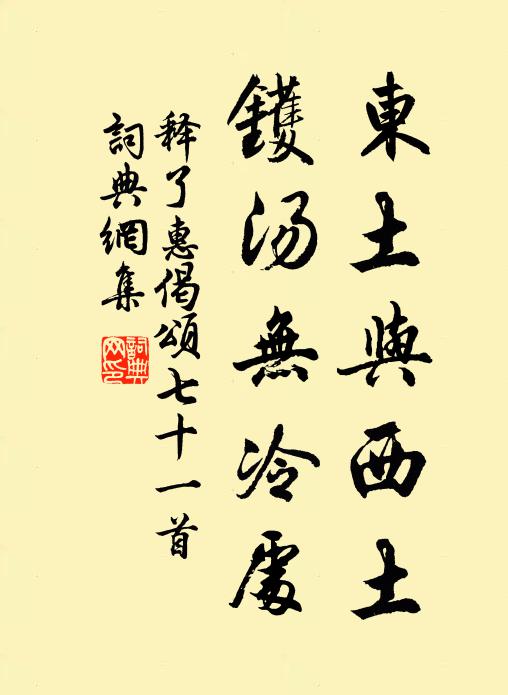 東土與西土
鑊湯無冷處
释了惠偈頌七十一首
詞典網集
詞典網印